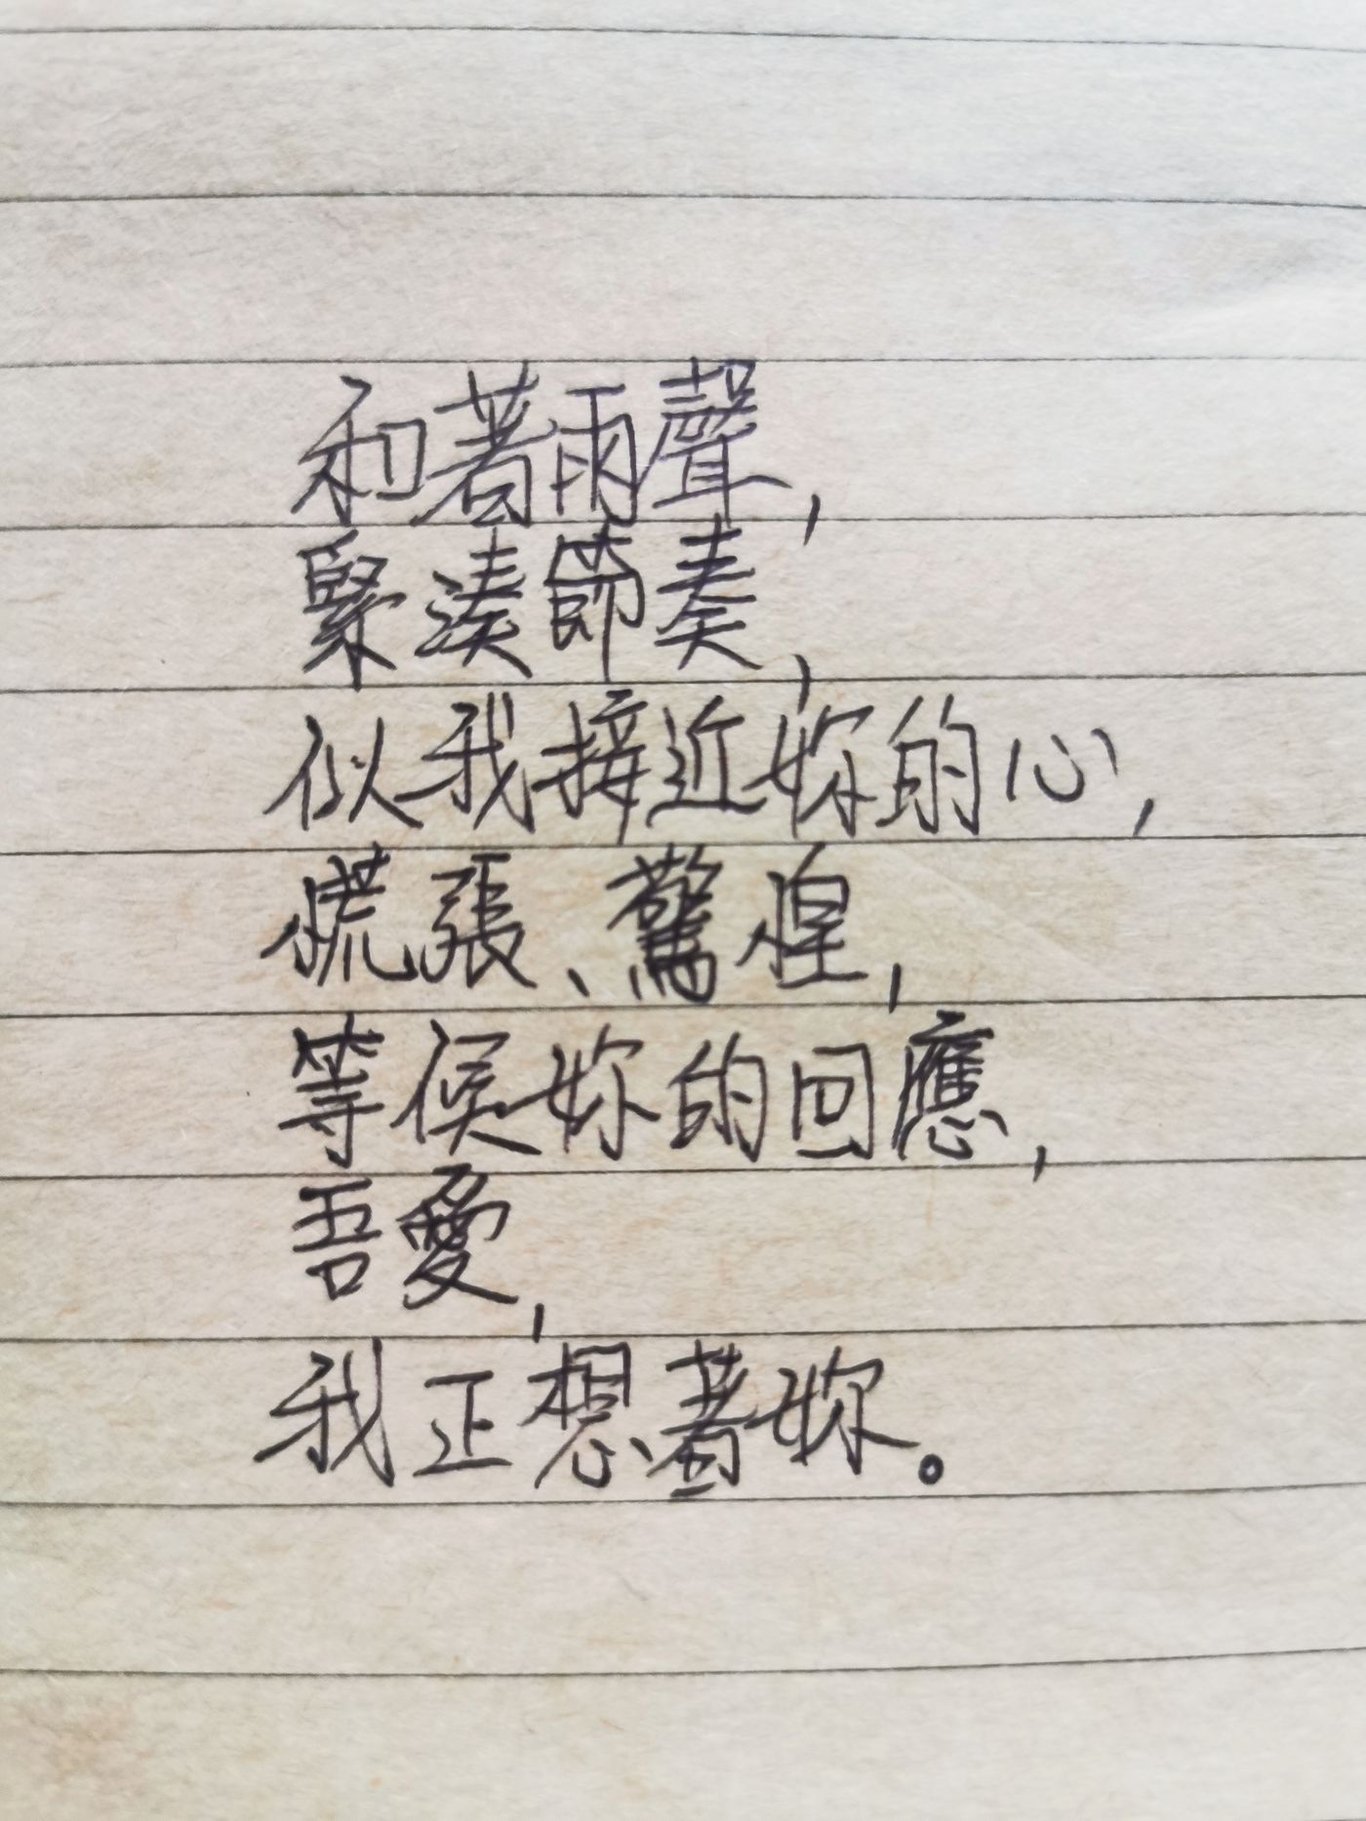 和著雨聲,
緊湊節奏,
似我接近妳的心,
慌張、驚惶,
等候妳的回應,
吾愛,
我正想著妳。